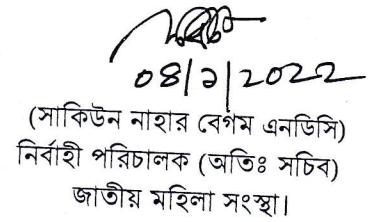 ০৪/১/২০২২
(সাকিউন নাহার বেগম এনডিসি)
নির্বাহী পরিচালক (অতিঃ সচিব)
জাতীয় মহিলা সংস্থা।